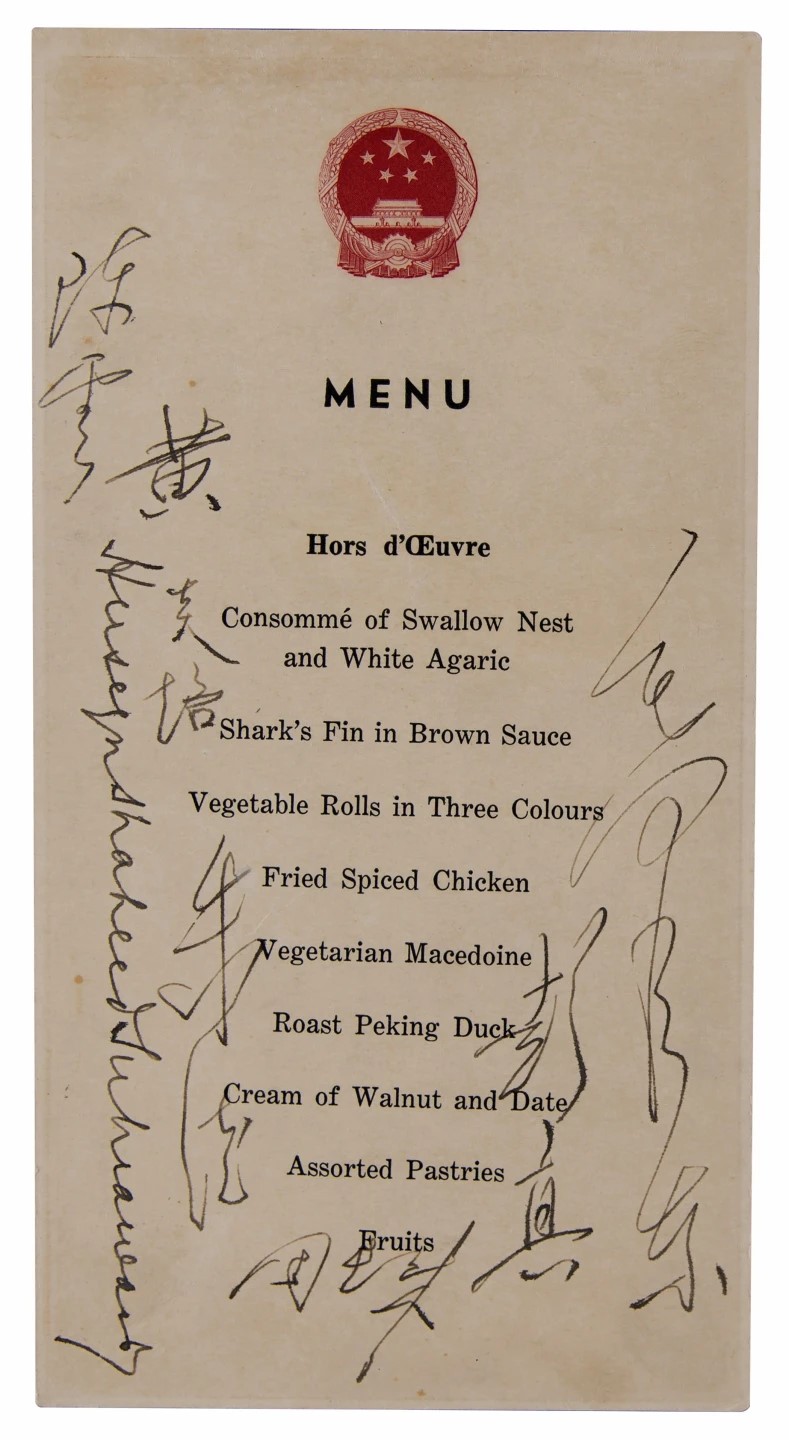 MENU
Hors d'Œuvre
Consommé of Swallow Nest
and White Agaric
Shark's Fin in Brown Sauce
Vegetable Rolls in Three Colours
Fried Spiced Chicken
Vegetarian Macedoine
Roast Peking Duck
Cream of Walnut and Date
Assorted Pastries
Fruits
陈雲
黄炎培
Huseyn Shaheed Suhrawardy
朱德
周恩来
彭真
毛泽东